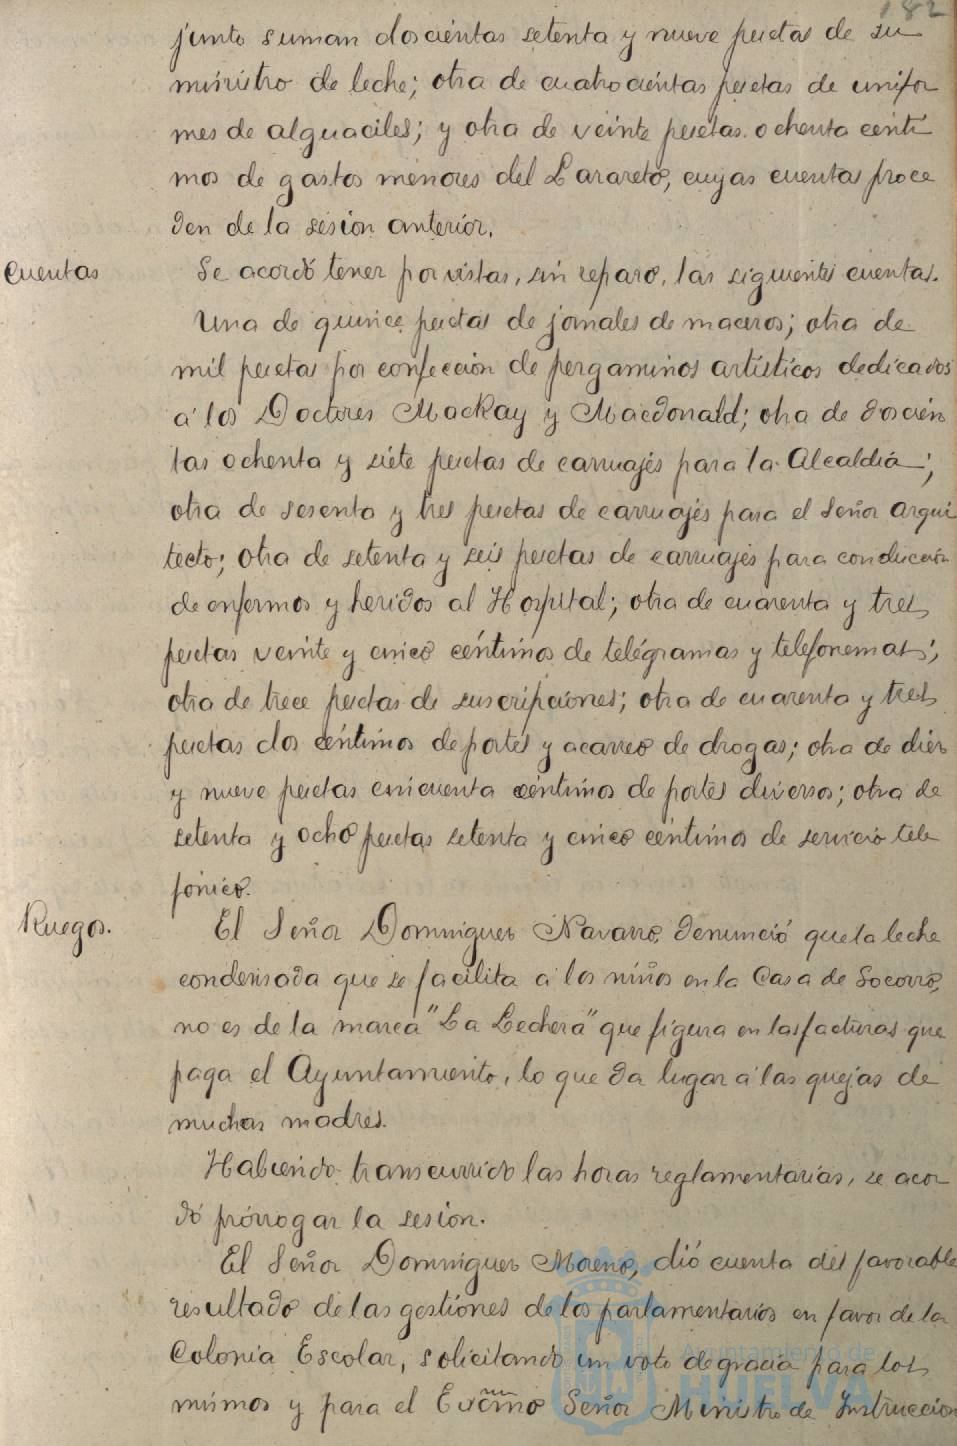 182
junto suman doscientas setenta y nueve pesetas de su
ministro de leche; otra de cuatrocientas pesetas de unifor
mes de alguaciles; y otra de veinte pesetas ochenta centi
mos de gastos menores del Lazareto, cuyas cuentas proce
den de la sesion anterior.
Cuentas Se acordó tener por vistas, sin reparo, las siguientes cuentas.
Una de quince pesetas de jornales de maceros; otra de
mil pesetas por confeccion de pergaminos artisticos dedicados
á los Doctores Mackay y Macdonald; otra de doscien
tas ochenta y siete pesetas de carruajes para la Alcaldia;
otra de sesenta y tres pesetas de carruajes para el Señor Arqui
tecto; otra de setenta y seis pesetas de carruajes para conduccion
de enfermos y heridos al Hospital; otra de cuarenta y tres
pesetas veinte y cinco céntimos de telégramas y telefonemas;
otra de trece pesetas de suscripciones; otra de cuarenta y tres
pesetas dos céntimos de portes y acarreo de drogas; otra de diez
y nueve pesetas cincuenta céntimos de portes diversos; otra de
setenta y ocho pesetas setenta y cinco céntimos de servicio tele
fónico.
Ruegos. El Señor Dominguez Navarro, denunció que la leche
condensada que se facilita á los niños en la Casa de Socorro,
no es de la marca "La Lechera" que figura en las facturas que
paga el Ayuntamiento, lo que da lugar á las quejas de
muchas madres.
Habiendo transcurrido las horas reglamentarias, se acor
dó prórrogar la sesion.
El Señor Dominguez Moreno, dió cuenta del favorable
resultado de las gestiones de los parlamentarios en favor de la
Colonia Escolar, solicitando un voto de gracia para los
mismos y para el Excmo Señor Ministro de Instruccion
Ayuntamiento de
HUELVA